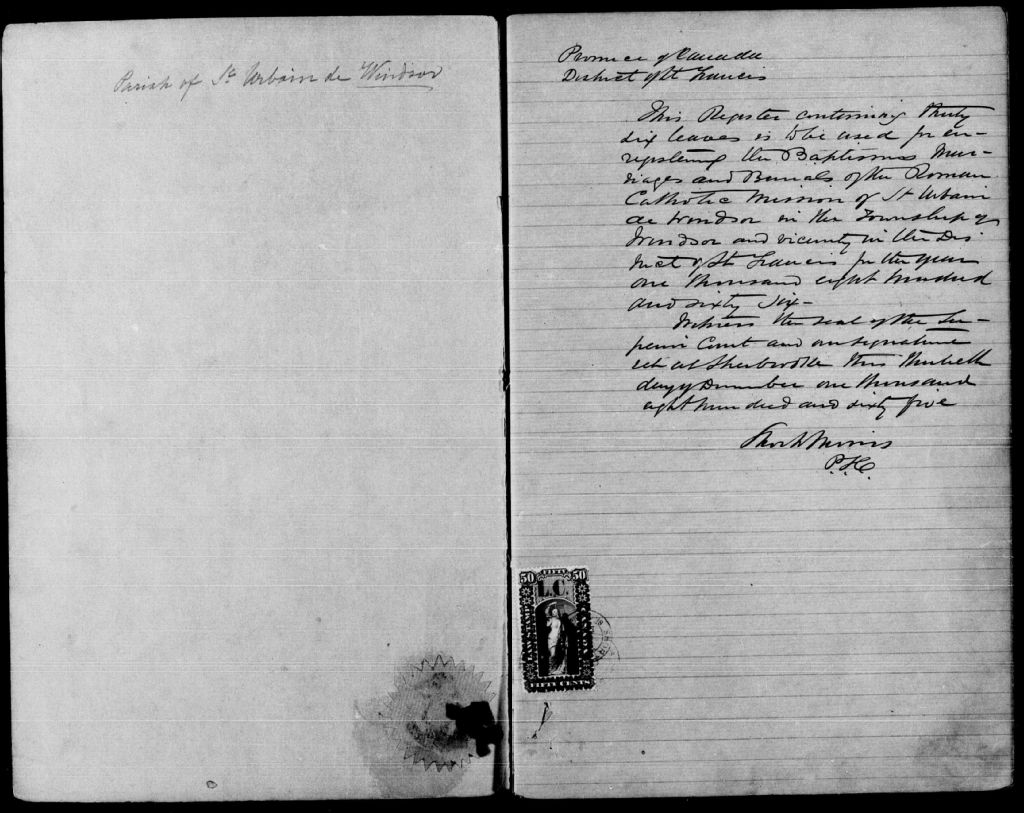 Parish of St Urbain de Windsor
Province of Canada
District of St Francis
This Register containing thirty
six leaves is to be used for en-
registering the Baptisms Mar-
riages and Burials of the Roman
Catholic Mission of St Urbain
de Windsor in the Township of
Windsor and vicinity in the Dis
trict of St Francis for the year
one thousand eight hundred
and sixty six-
Witness the seal of the Su-
perior Court and our signature
set at Sherbrooke this thirtieth
day of December one thousand
eight hundred and sixty five
Morris
P.S.C.
50 FIFTY 50
L.C.
LAW STAMP
FIFTY CENTS